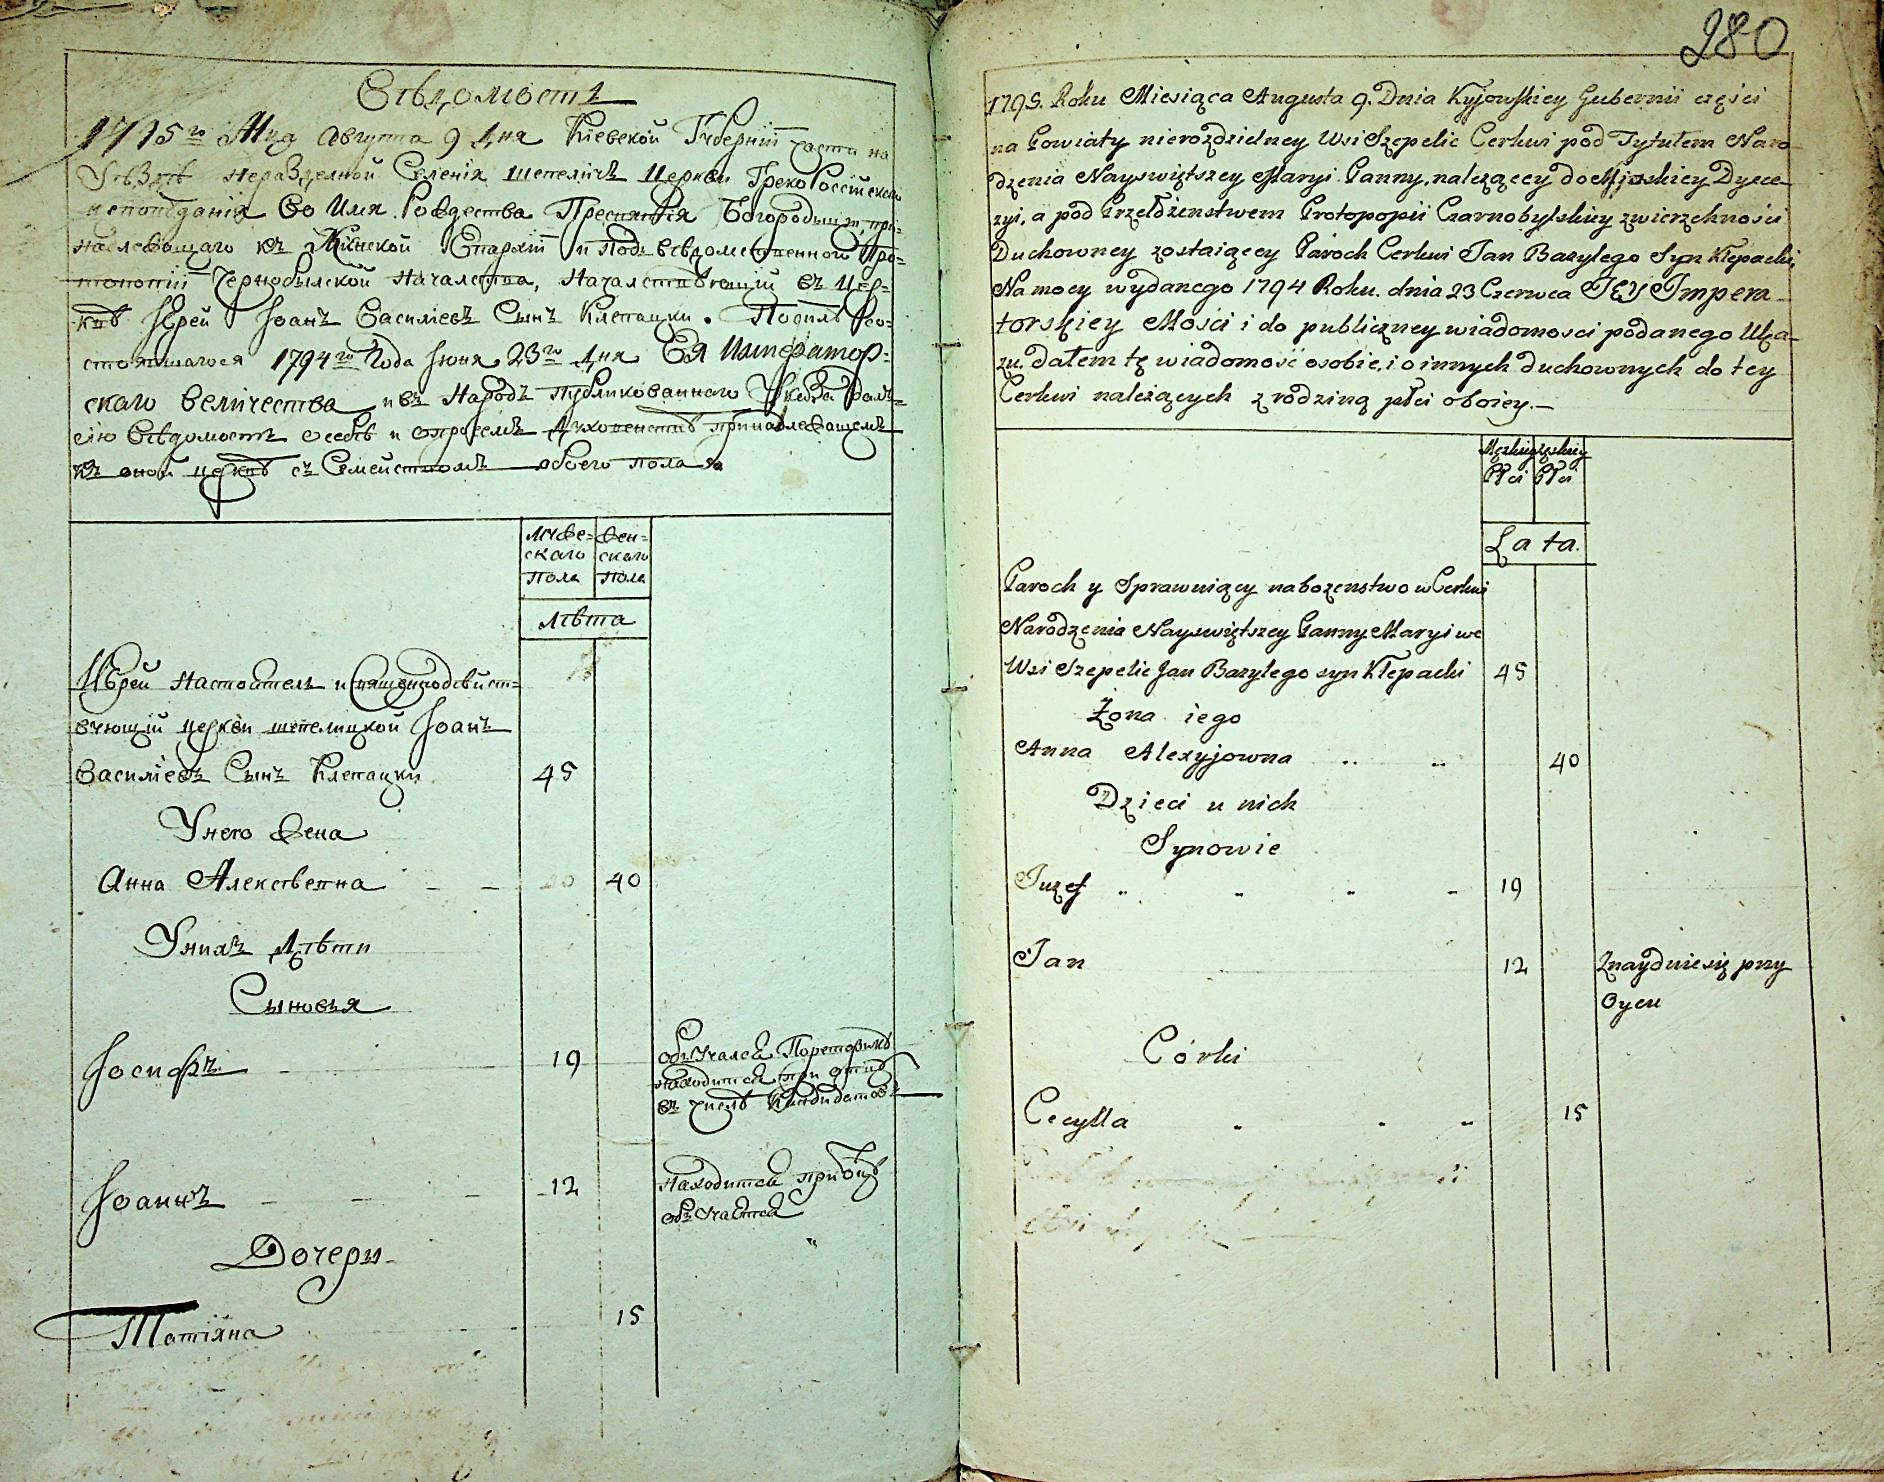 Вѣдомость
1795го Мца Августа 9 Дня Кіевской Губерніи части на
Уѣзды нераздѣлной Селенія Шепеличъ Церкви Греко Россійскаго
исповѣданія Во Имя Рождества Пресвятыя Богородицы, при-
надлежащаго къ Минской Епархіи и подъ вѣдомственной Про-
топопіи Чернобылской Началства, Началствующій въ Цер-
квѣ Іерей Іоанъ Василіевъ Сынъ Клепацки. По силѣ со-
стоявшагося 1794го Года Іюня 23го Дня Ея Император-
скаго Величества и въ Народъ публикованнаго Указа далъ
сію Вѣдомость о себѣ и о протчемъ Духовенствѣ принадлежащемъ
къ оной церквѣ съ Семействомъ обоего пола
Мужe- Жен-
скаго скаго
Пола Пола
Лѣта
Іерей Настоятель и Священнодѣйст-
вующій церкви шепелицкой Іоанъ
Василіевъ Сынъ Клепацки 45
У него Жена
Анна Алексѣевна 40
У нихъ Дѣти
Сыновья
Іосифъ 19 обучался Пореторикѣ
находится при отцѣ
въ числѣ Кандидатовъ
Іоаннъ 12 Находится при Отцѣ
обучается
Дочери
Татіяна 15
280
1795. Roku Miesiąca Augusta 9. Dnia Kyjowskiey Gubernii części
na Powiaty nierozdzielney Wsi Szepelic Cerkwi pod Tytułem Naro-
dzenia Nayswiętszey Maryi Panny, należącey do Mińskiey Dyece-
zyi, a pod Przełdzienstwem Protopopii Czarnobylskiey zwierzchności
Duchowney zostaiącey Paroch Cerkwi Jan Bazylego Syn Klepacki,
Na mocy wydanego 1794 Roku. dnia 23 Czerwca JEY Impera-
torskiey Mości i do publiczney wiadomosci podanego Uka-
zu. dałem tę wiadomość osobie, i o innych duchownych do tey
Cerkwi należących z rodziną płci oboiey.
Męzkiey Zęskiey
Płci Płci
Lata.
Paroch y Sprawuiący nabozenstwo w Cerkwi
Narodzenia Nayswiętszey Panny Maryi we
Wsi Szepelic Jan Bazylego syn Klepacki 45
Żona iego
Anna Alexyjowna 40
Dzieci u nich
Synowie
Juzef 19
Jan 12 Znayduie się przy
Oycu
Córki
Cecylla 15